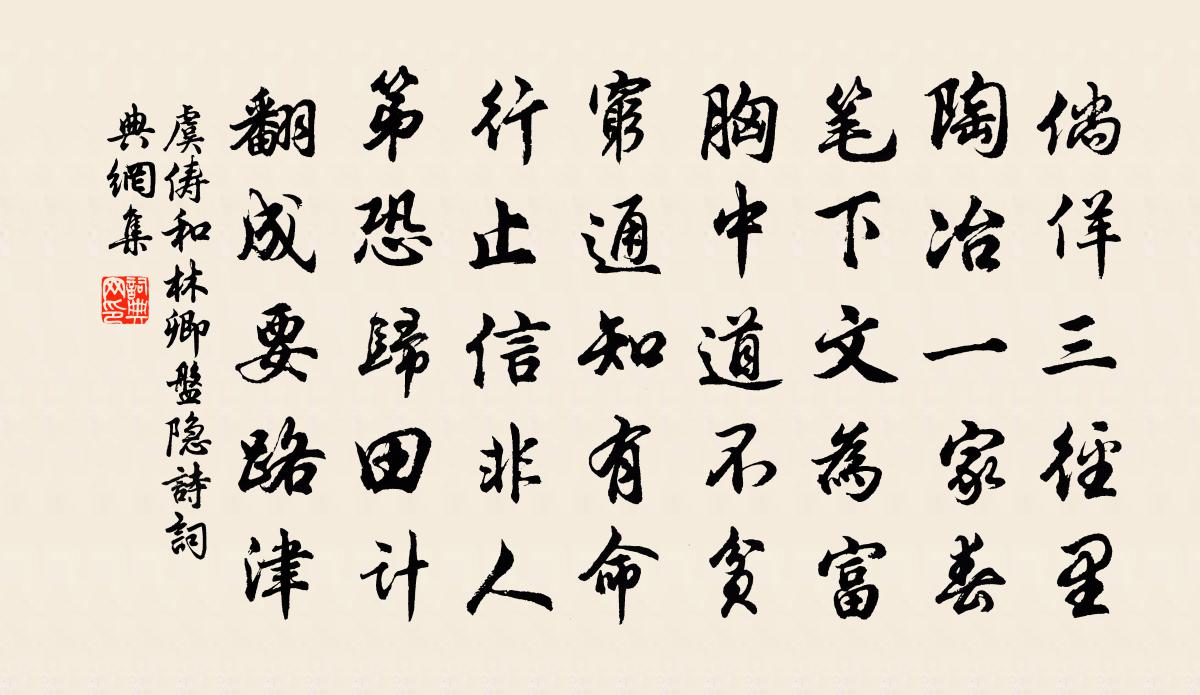 倘佯三徑里
陶冶一家春
笔下文為富
胸中道不貧
窮通知有命
行止信非人
第恐歸田计
翻成要路津
虞儔和林卿盤隐詩詞
典網集
詞典
网印